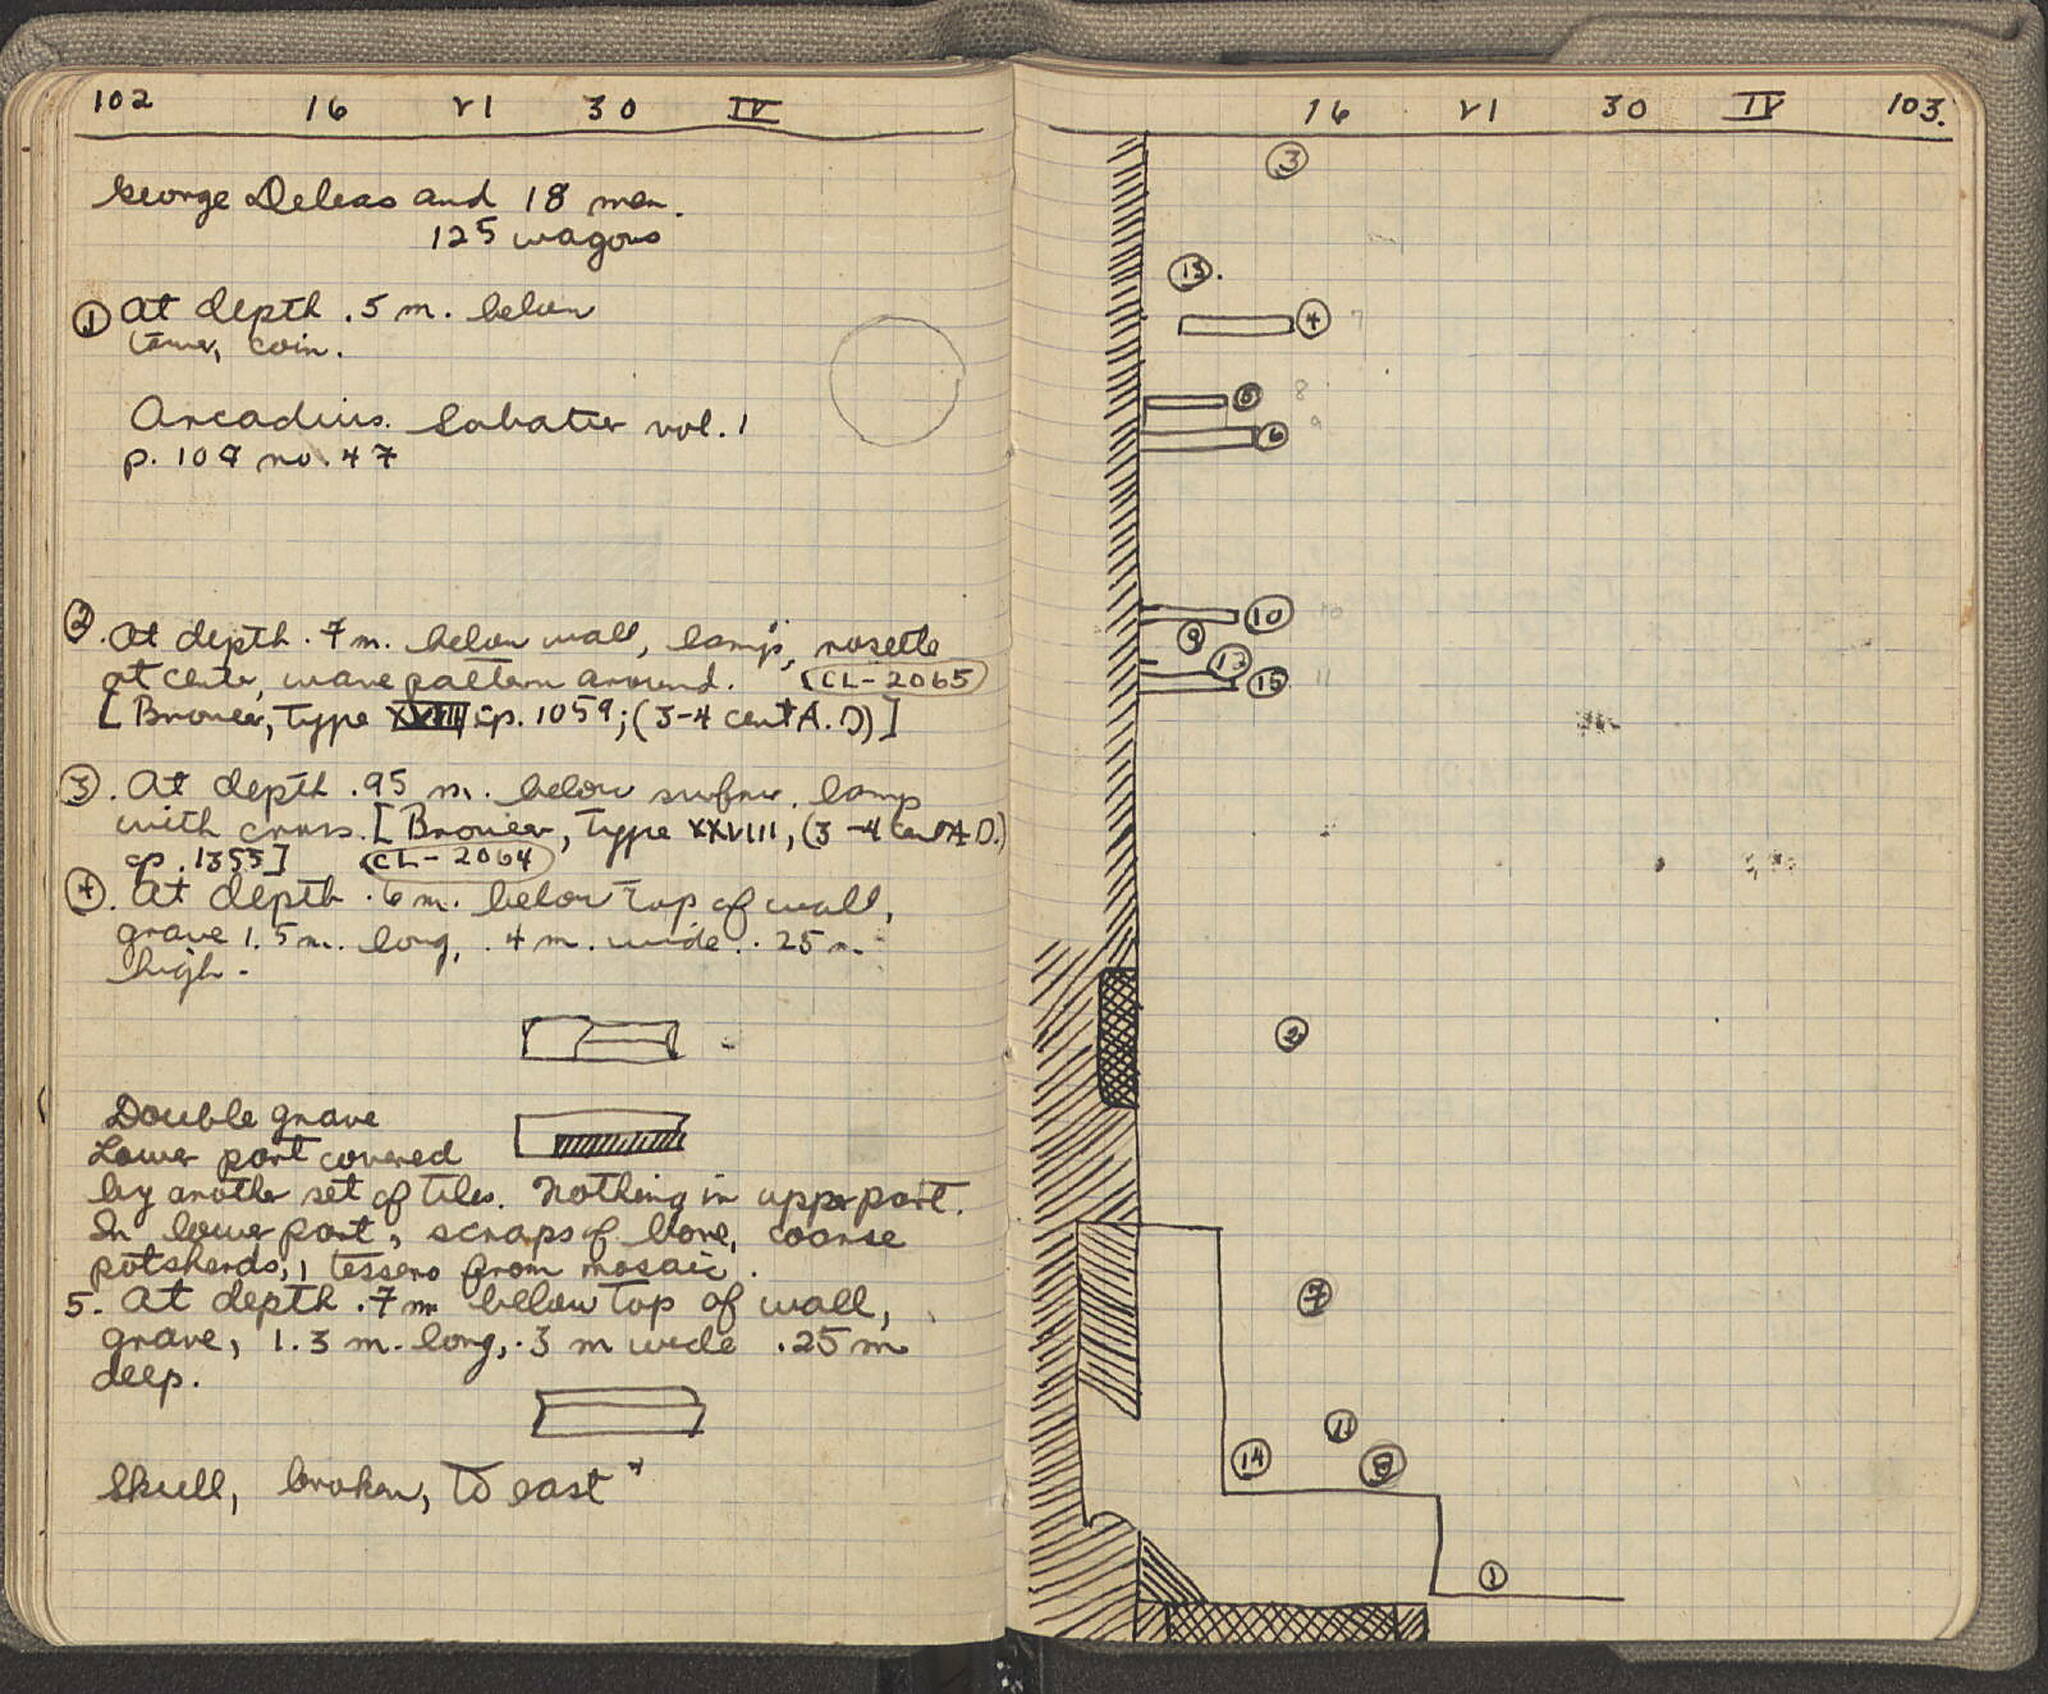 102 16 VI 30 IV
George Deleas and 18 men.
125 wagons
① At depth .5 m. below
coin.
Arcadius. Sabatier vol. 1
p. 109 no. 47
② At depth .7 m. below wall, lamp, rosette
at center, wave pattern around. CL-2065
[Broneer, Type XXVIII cp. 1059; (3-4 cent A.D)]
③. At depth .95 m. below surface, lamp
with cross. [Broneer, Type XXVIII, (3-4 cent A D.)
cp. 1355] CL-2064
④. At depth .6 m. below top of wall,
grave 1.5 m. long, .4 m. wide. .25 m.
high.
Double grave
Lower part covered
by another set of tiles. Nothing in upper part.
In lower part, scraps of bone, coarse
potsherds, 1 tessera from mosaic.
5. At depth .7 m below top of wall,
grave, 1.3 m. long, .3 m wide .25 m
deep.
Skull, broken, to east
16 VI 30 IV 103.
③
⑬.
④ 7
⑤ 8
⑥ 9
⑩ 10
⑨
⑮ 11
②
⑦
⑪
⑭ ⑧
①